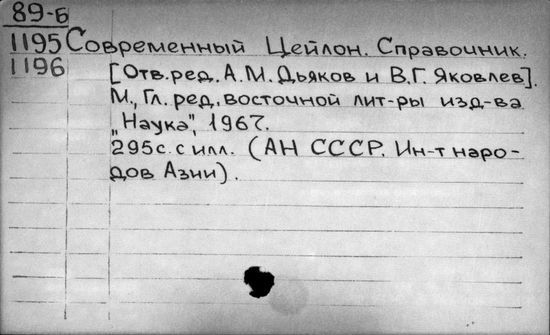 89-Б
1195 Современный Цейлон. Справочник.
1196 [Отв. ред. А. М. Дьяков и В. Г. Яковлев].
М., Гл. ред. восточной лит-ры изд-ва
„Наука", 1967.
295с. с илл. (АН СССР. Ин-т наро-
дов Азии).